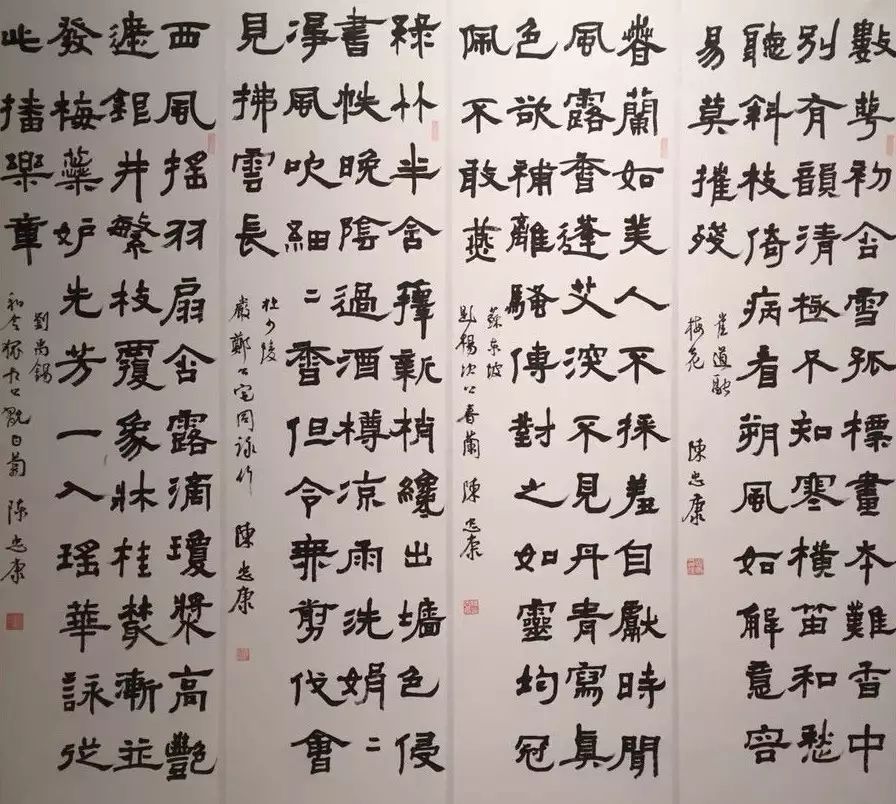 數萼初含雪孤標畫本難香中
別有韻清極不知寒橫笛和愁
聽斜枝倚病看朔風如解意容
易莫摧殘
崔道融
梅花 陳忠康
春蘭如美人不採羞自獻時聞
風露香蓬艾深不見丹青寫真
色欲補離騷傳對之如靈均冠
佩不敢燕
蘇東坡
題楊次公春蘭 陳忠康
綠竹半含籜新梢纔出墻色侵
書帙晚陰過酒樽涼雨洗娟二
淨風吹細二香但令無剪伐會
見拂雲長
杜少陵
嚴鄭公宅同詠竹 陳忠康
西風搖羽扇含露滴瓊漿高艷
遮銀井繁枝覆象牀桂叢漸並
發梅蘂妒先芳一入瑤華詠從
此播樂章
劉禹錫
和令狐相公翫白菊 陳忠康